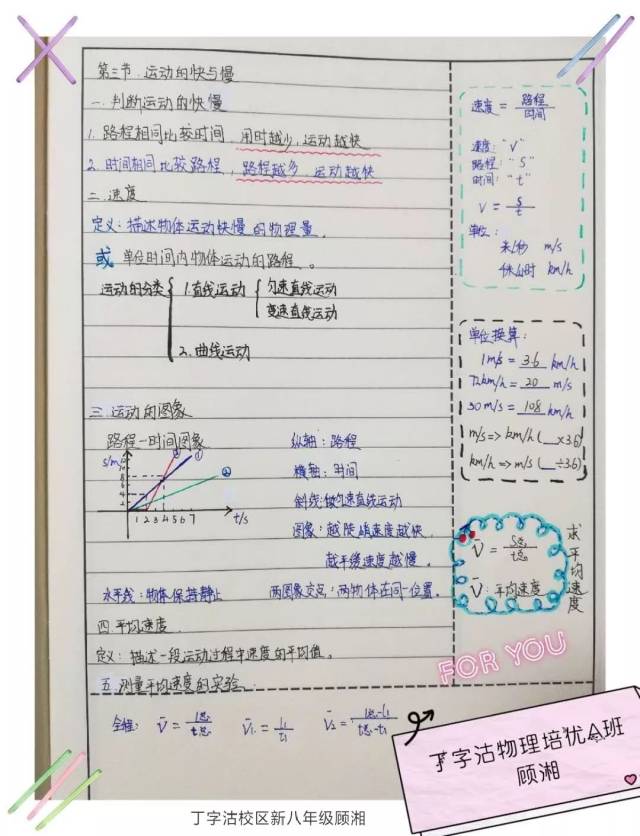 第三节 运动的快与慢
一、判断运动的快慢
1. 路程相同比较时间,用时越少,运动越快
2. 时间相同比较路程,路程越多 运动越快
二、速度
定义:描述物体运动快慢的物理量.
或 单位时间内物体运动的路程。
运动的分类 1.直线运动 匀速直线运动
变速直线运动
2.曲线运动
三、运动的图象
路程-时间图象
s/m
1 2 3 4 5 6 7 t/s
纵轴:路程
横轴:时间
斜线:做匀速直线运动
图象:越陡峭速度越快.
越平缓速度越慢.
水平线:物体保持静止
两图象交点:两物体在同一位置.
四、平均速度
定义:描述一段运动过程中速度的平均值。
五、测量平均速度的实验
全程: v̄ = l总/t总 v̄₁ = l₁/t₁ v̄₂ = l总-l₁/t总-t₁
速度 = 路程/时间
速度:"V"
路程:"S"
时间:"t"
V = s/t
单位:
米/秒 m/s
千米/小时 km/h
单位换算:
1m/s = 3.6 km/h
72km/h = 20 m/s
30m/s = 108 km/h
m/s => km/h (__×3.6)
km/h => m/s (__÷3.6)
V̄ = S总/t总
V̄:平均速度
求平均速度
FOR YOU
丁字沽物理培优A班
顾湘
丁字沽校区新八年级顾湘